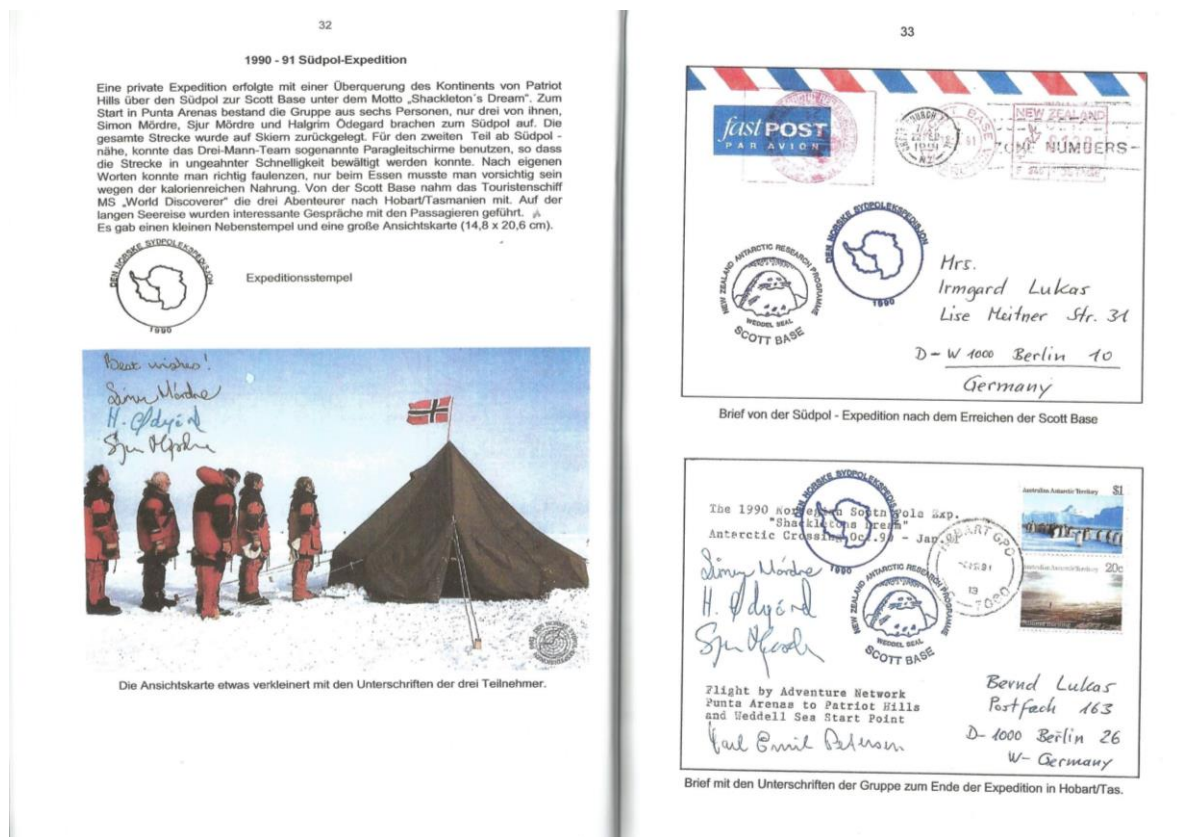 32
1990 - 91 Südpol-Expedition
Eine private Expedition erfolgte mit einer Überquerung des Kontinents von Patriot
Hills über den Südpol zur Scott Base unter dem Motto „Shackleton´s Dream". Zum
Start in Punta Arenas bestand die Gruppe aus sechs Personen, nur drei von ihnen,
Simon Mördre, Sjur Mördre und Halgrim Ödegard brachen zum Südpol auf. Die
gesamte Strecke wurde auf Skiern zurückgelegt. Für den zweiten Teil ab Südpol -
nähe, konnte das Drei-Mann-Team sogenannte Paragleitschirme benutzen, so dass
die Strecke in ungeahnter Schnelligkeit bewältigt werden konnte. Nach eigenen
Worten konnte man richtig faulenzen, nur beim Essen musste man vorsichtig sein
wegen der kalorienreichen Nahrung. Von der Scott Base nahm das Touristenschiff
MS „World Discoverer" die drei Abenteurer nach Hobart/Tasmanien mit. Auf der
langen Seereise wurden interessante Gespräche mit den Passagieren geführt.
Es gab einen kleinen Nebenstempel und eine große Ansichtskarte (14,8 x 20,6 cm).
DEN NORSKE SYDPOLEKSPEDISJON
1990
Expeditionsstempel
Best wishes!
Simen Mørdre
H. Ødgård
Die Ansichtskarte etwas verkleinert mit den Unterschriften der drei Teilnehmer.
33
fast POST
PAR AVION
NEW ZEALAND
ZONE NUMBERS-
DEN NORSKE SYDPOLEKSPEDISJON
1990
NEW ZEALAND ANTARCTIC RESEARCH PROGRAMME
WEDDEL SEAL
SCOTT BASE
Mrs.
Irmgard Lukas
Lise Meitner Str. 31
D-W 1000 Berlin 10
Germany
Brief von der Südpol - Expedition nach dem Erreichen der Scott Base
DEN NORSKE SYDPOLEKSPEDISJON
1990
The 1990 Norwegian South Pole Exp.
"Shackletons Dream"
Antarctic Crossing Oct.90 - Jan.
Simen Mørdre
H. Ødgård
NEW ZEALAND ANTARCTIC RESEARCH PROGRAMME
WEDDEL SEAL
SCOTT BASE
HOBART GPO
13
7000
Australian Antarctic Territory $1
Australian Antarctic Territory 20c
Flight by Adventure Network
Punta Arenas to Patriot Hills
and Weddell Sea Start Point
Karl Emil Petersen
Bernd Lukas
Postfach 163
D-1000 Berlin 26
W-Germany
Brief mit den Unterschriften der Gruppe zum Ende der Expedition in Hobart/Tas.